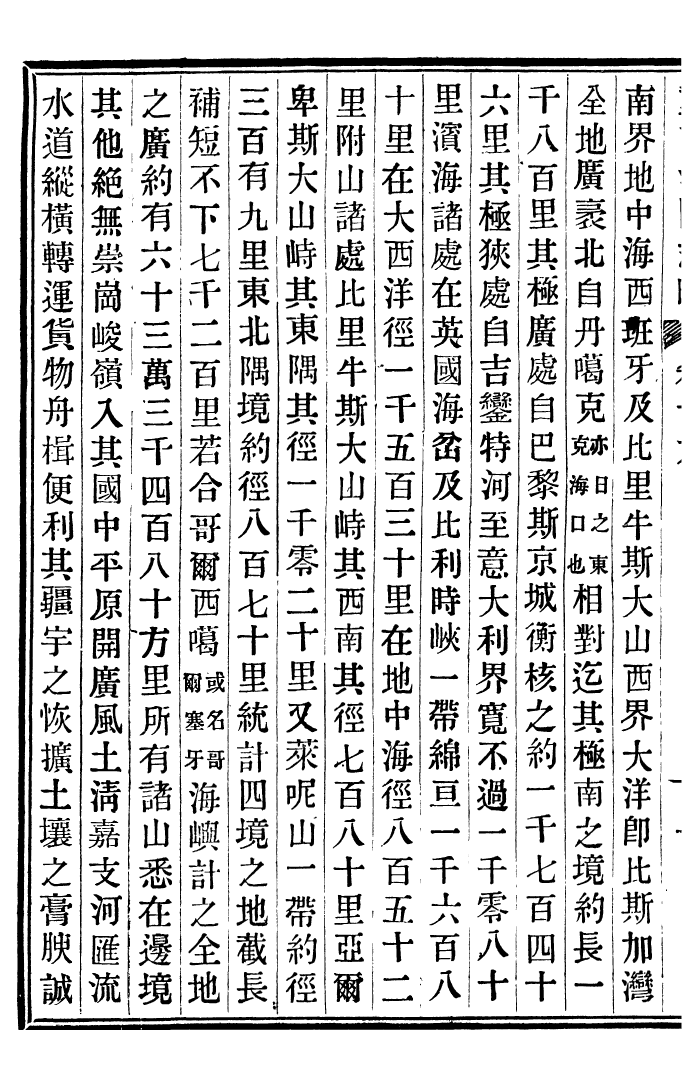 南界地中海西班牙及比里牛斯大山西界大洋卽比斯加灣
全地廣袤北自丹噶克亦曰之東克海口也相對迄其極南之境約長一
千八百里其極廣處自巴黎斯京城衡核之約一千七百四十
六里其極狹處自吉鑾特河至意大利界寬不過一千零八十
里濱海諸處在英國海岔及比利時峽一帶綿亘一千六百八
十里在大西洋徑一千五百三十里在地中海徑八百五十二
里附山諸處比里牛斯大山峙其西南其徑七百八十里亞爾
卑斯大山峙其東隅其徑一千零二十里又萊呢山一帶約徑
三百有九里東北隅境約徑八百七十里統計四境之地截長
補短不下七千二百里若合哥爾西噶或名哥爾塞牙海嶼計之全地
之廣約有六十三萬三千四百八十方里所有諸山悉在邊境
其他絕無崇崗峻嶺入其國中平原開廣風土淸嘉支河匯流
水道縱橫轉運貨物舟楫便利其疆宇之恢擴土壤之膏腴誠